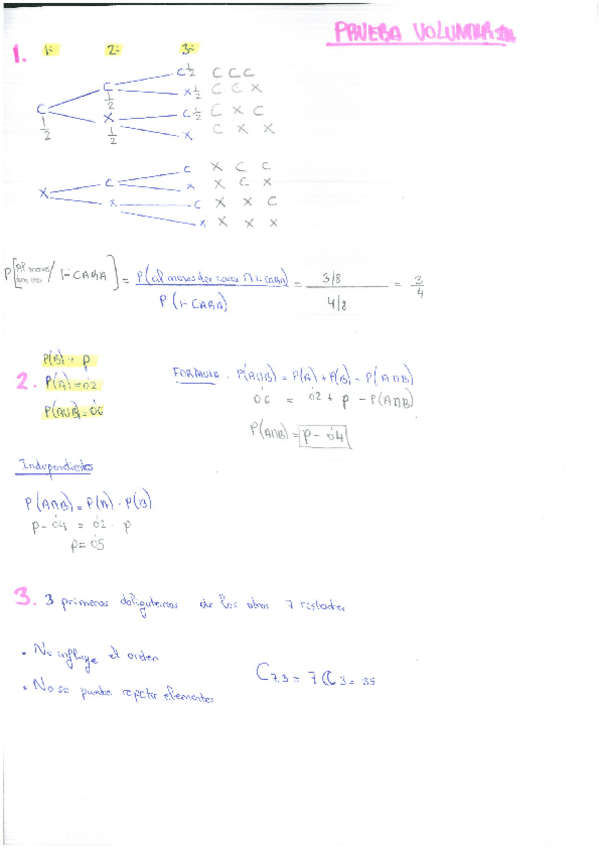 PRUEBA VOLUNTARIA
1. 1- 2- 3-
C 1/2 C C C
C 1/2 X 1/2 C C X
C 1/2 X 1/2 C 1/2 C X C
X C X X
C X C C
X C X X C X
X C X X C
X X X X
P[al menos dos caras / 1-CARA] = P(al menos dos caras ∩ 1-CARA) / P(1-CARA) = 3/8 / 4/8 = 3/4
P(B) = p
2. P(A) = 0'2
P(A∪B) = 0'6
FORMULA. P(A∪B) = P(A) + P(B) - P(A∩B)
0'6 = 0'2 + p - P(A∩B)
P(A∩B) = p - 0'4
Independientes
P(A∩B) = P(A) · P(B)
p - 0'4 = 0'2 · p
p = 0'5
3. 3 primeras obligatorias de las otras 7 restantes
• No influye el orden
• No se puede repetir elementos
C7,3 = 7 C 3 = 35